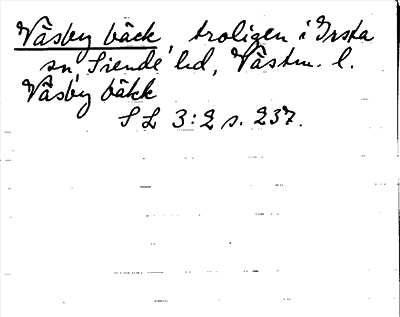 Väsby bäck, troligen i Irsta
sn, Siende hd, Västm. l.
Väsby bäkk
SL 3:2 s. 237.